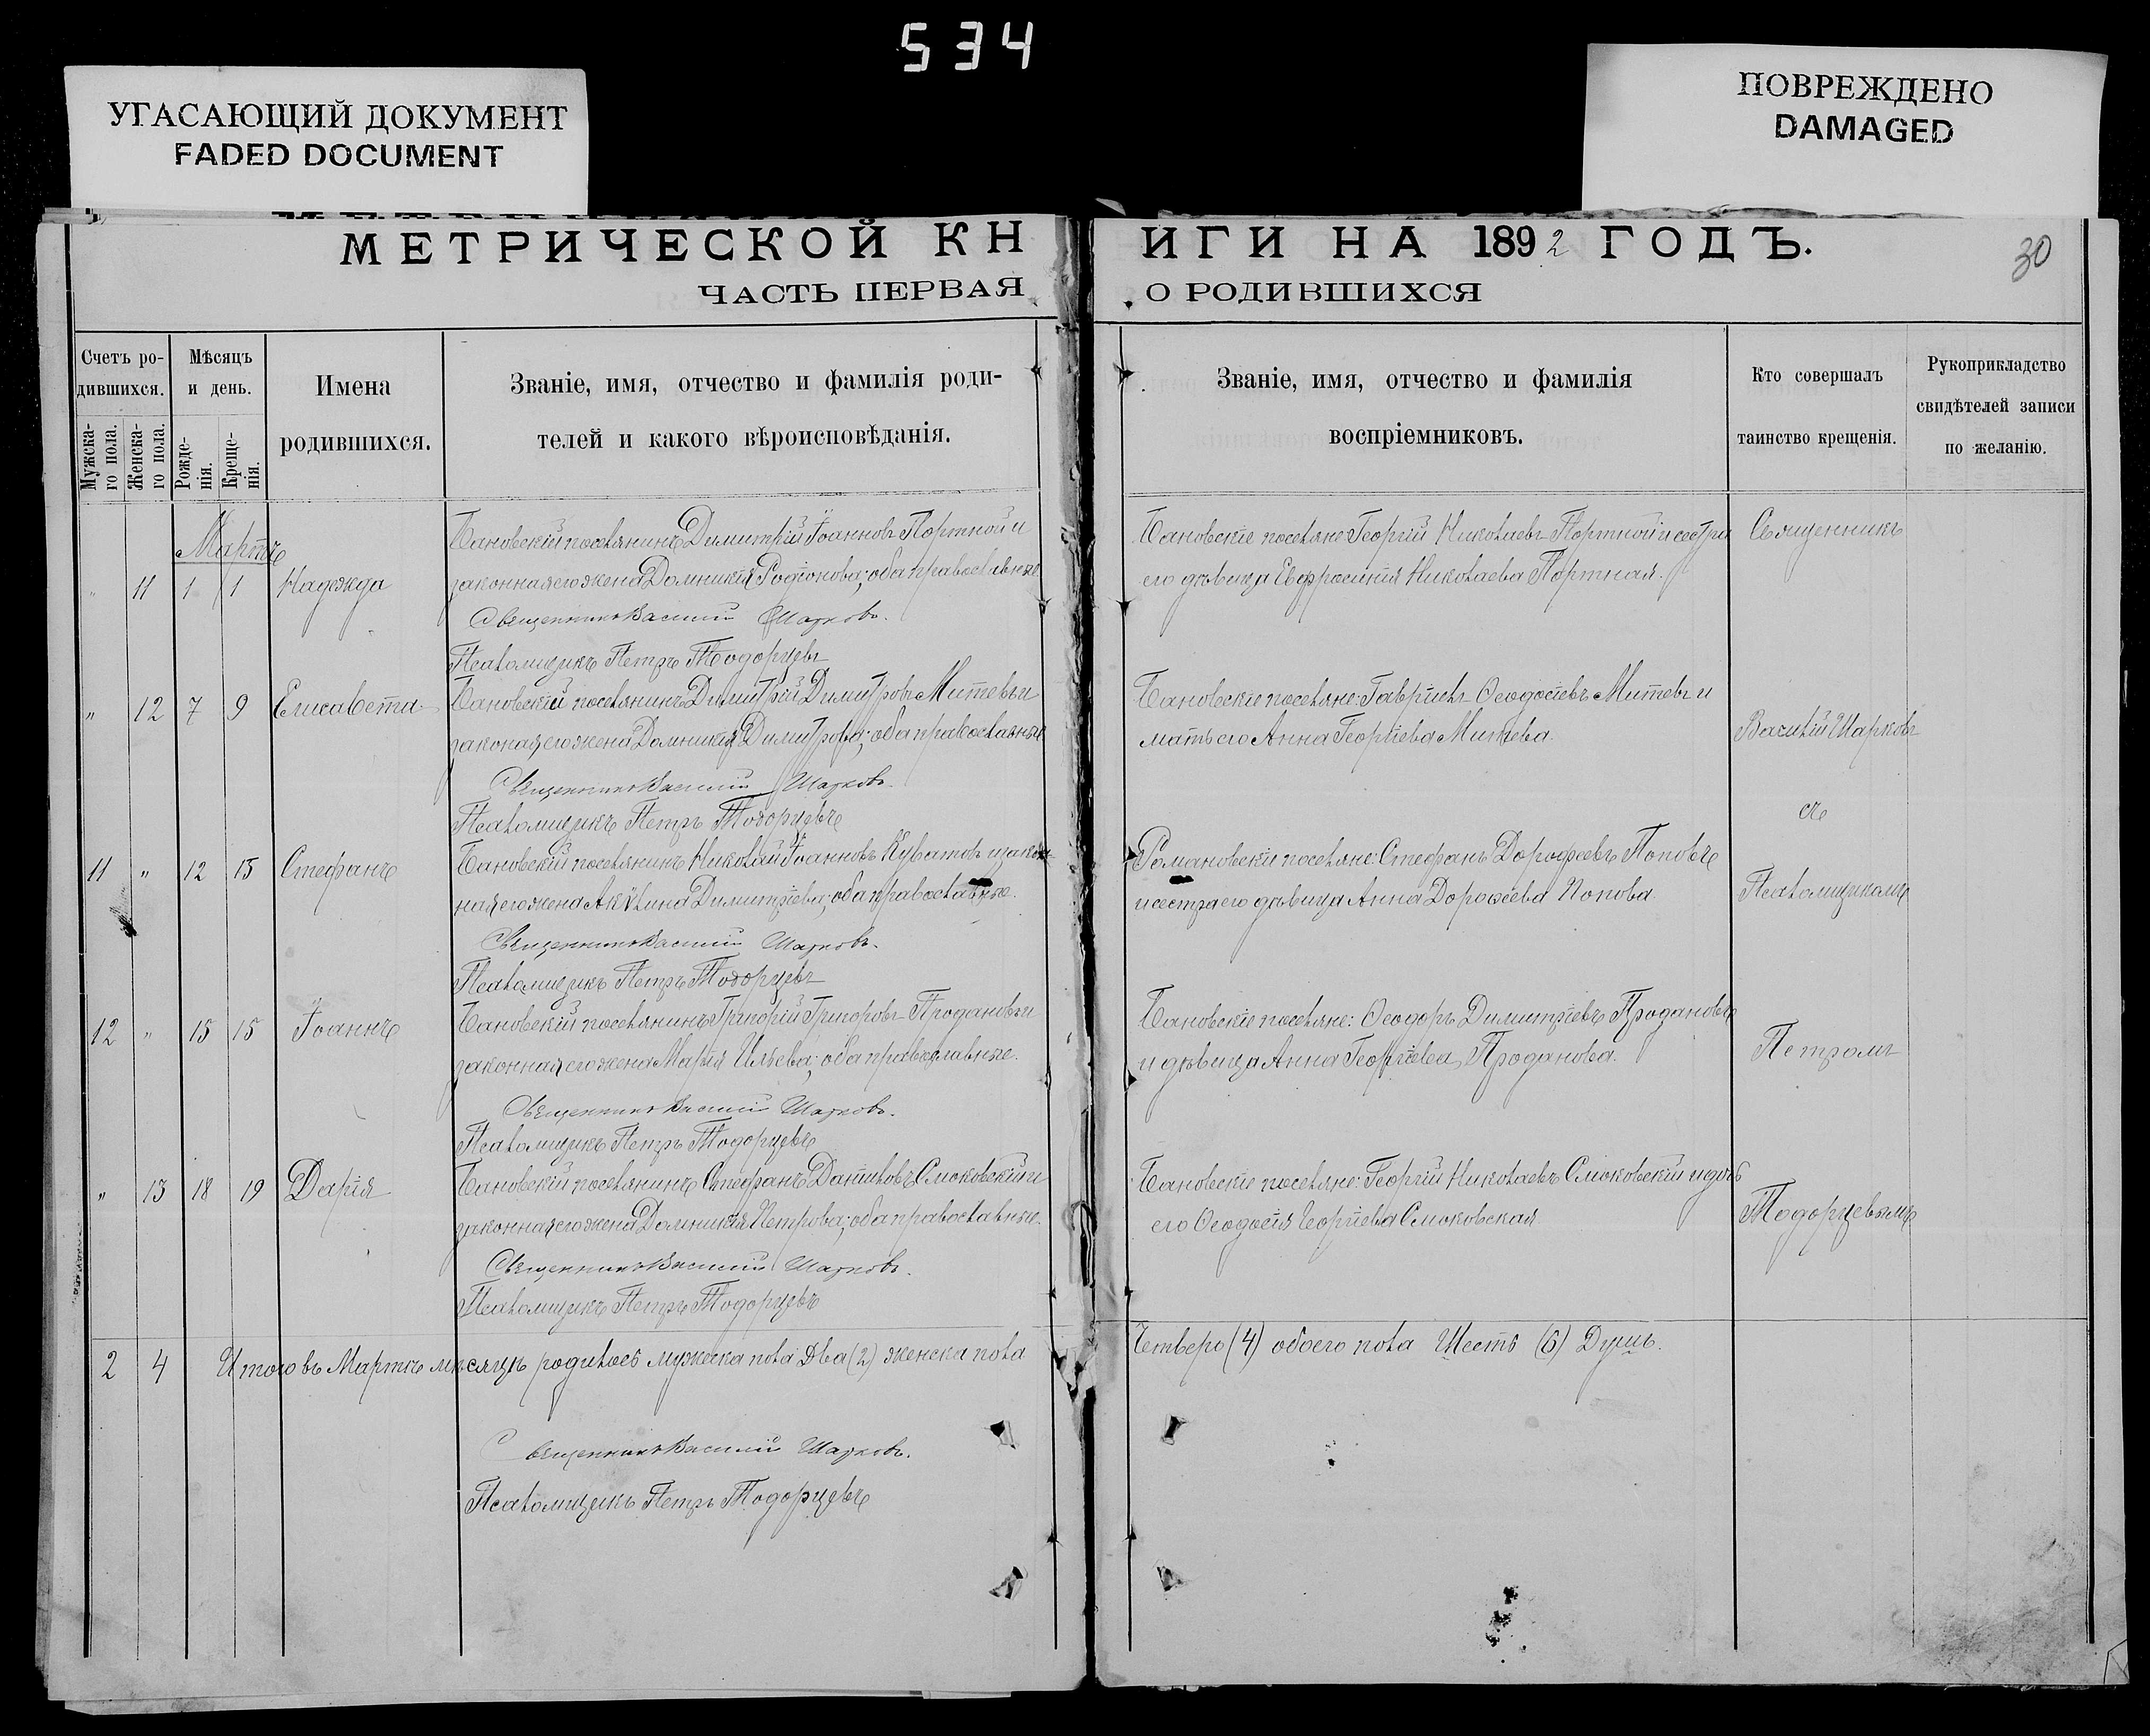 534
УГАСАЮЩИЙ ДОКУМЕНТ
FADED DOCUMENT
ПОВРЕЖДЕНО
DAMAGED
МЕТРИЧЕСКОЙ КН
ИГИ НА 1892 ГОДЪ.
30
ЧАСТЬ ПЕРВАЯ
О РОДИВШИХСЯ
Счетъ ро-
дившихся.
Мужска-
го пола.
Женска-
го пола.
Мѣсяцъ
и день.
Рожде-
нія.
Креще-
нія.
Имена
родившихся.
Званіе, имя, отчество и фамилія роди-
телей и какого вѣроисповѣданія.
Званіе, имя, отчество и фамилія
воспріемниковъ.
Кто совершалъ
таинство крещенія.
Рукоприкладство
свидѣтелей записи
по желанію.
Мартъ
" 11 1 1 Надежда
Бановскій поселянинъ Димитрій Іоанновъ Портной и
законная его жена Домникія Родіонова; оба православные
Священникъ Василій Шарковъ.
Псаломщикъ Петръ Тодорцевъ
Бановскіе поселяне: Георгій Николаевъ Портной и сестра
его дѣвица Евфросинія Николаева Портная.
" 12 7 9 Елисавета
Бановскій поселянинъ Димитрій Димитровъ Митевъ и
законая его жена Домникія Димитрова; оба православные
Священникъ Василій Шарковъ.
Псаломщикъ Петръ Тодорцевъ
Бановскіе поселяне: Гавріилъ Ѳеодосіевъ Митевъ и
мать его Анна Георгіева Митева.
11 " 12 15 Стефанъ
Бановскій поселянинъ Николай Іоанновъ Куватовъ и закон-
ная его жена Акулина Димитріева; оба православные.
Священникъ Василій Шарковъ.
Псаломщикъ Петръ Тодорцевъ
Романовскіе поселяне: Стефанъ Дорофеевъ Поповъ
и сестра его дѣвица Анна Дорофеева Попова.
12 " 15 15 Іоаннъ
Бановскій поселянинъ Григорій Григоровъ Продановъ и
законная его жена Марія Ильева; оба православные.
Священникъ Василій Шарковъ.
Псаломщикъ Петръ Тодорцевъ
Бановскіе поселяне: Ѳеодоръ Димитріевъ Продановъ
и дѣвица Анна Георгіева Проданова.
" 13 18 19 Дарія
Бановскій поселянинъ Стефанъ Даниловъ Смоковскій и
законная его жена Домникія Петрова; оба православные.
Священникъ Василій Шарковъ.
Псаломщикъ Петръ Тодорцевъ
Бановскіе поселяне: Георгій Николаевъ Смоковскій и дочь
его Ѳеодосія Георгіева Смоковская
Священникъ
Василій Шарковъ
съ
Псаломщикомъ
Петромъ
Тодорцевымъ
2 4 Итого въ Мартѣ мѣсяцѣ родилось мужска пола два (2) женска пола
Четверо (4) обоего пола Шесть (6) Душъ.
Священникъ Василій Шарковъ.
Псаломщикъ Петръ Тодорцевъ